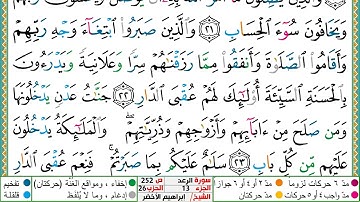 وَيَخَافُونَ سُوٓءَ ٱلْحِسَابِ ٢١ وَٱلَّذِينَ صَبَرُوا۟ ٱبْتِغَآءَ وَجْهِ رَبِّهِمْ
وَأَقَامُوا۟ ٱلصَّلَوٰةَ وَأَنفَقُوا۟ مِمَّا رَزَقْنَٰهُمْ سِرًّا وَعَلَانِيَةً وَيَدْرَءُونَ
بِٱلْحَسَنَةِ ٱلسَّيِّئَةَ أُو۟لَٰٓئِكَ لَهُمْ عُقْبَى ٱلدَّارِ ٢٢ جَنَّٰتُ عَدْنٍ يَدْخُلُونَهَا
وَمَن صَلَحَ مِنْ ءَابَآئِهِمْ وَأَزْوَٰجِهِمْ وَذُرِّيَّٰتِهِمْ وَٱلْمَلَٰٓئِكَةُ يَدْخُلُونَ
عَلَيْهِم مِّن كُلِّ بَابٍ ٢٣ سَلَٰمٌ عَلَيْكُم بِمَا صَبَرْتُمْ فَنِعْمَ عُقْبَى ٱلدَّارِ
مدّ ٦ حركات لزوماً مدّ ٢ أو ٤ أو ٦ جوازاً سورة الرعد ص 252 إخفاء، ومواقع الغُنَّة (حركتان) تفخيم
مدّ واجب ٤ أو ٥ حركات مدّ حركتان الجزء 13 الحزب 26 إدغام، وما لا يُلفَظ قلقلة
الشيخ: ابراهيم الأخضر